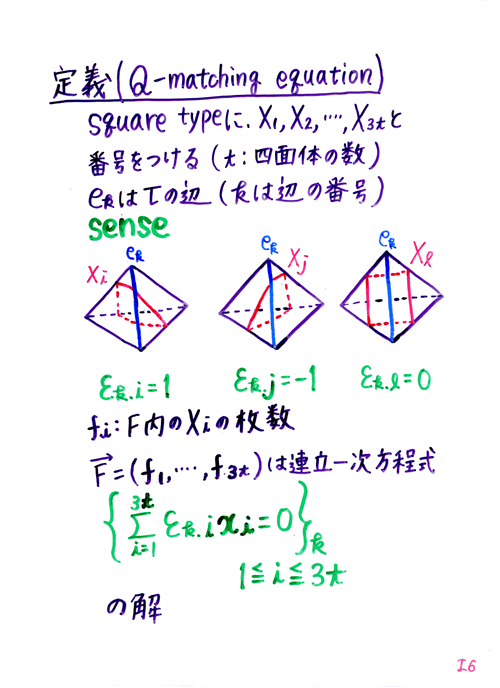 定義(Q-matching equation)
square typeに、X₁, X₂, …, X₃ₜと
番号をつける (t:四面体の数)
eₖはTの辺 (kは辺の番号)
sense
eₖ Xᵢ
eₖ Xⱼ
eₖ Xℓ
εₖ.ᵢ=1 εₖ.ⱼ=-1 εₖ.ℓ=0
fᵢ:F内のXᵢの枚数
F⃗=(f₁, …, f₃ₜ)は連立一次方程式
{ ∑_{i=1}^{3t} εₖ.ᵢxᵢ=0 }ₖ
1≦i≦3t
の解
I6